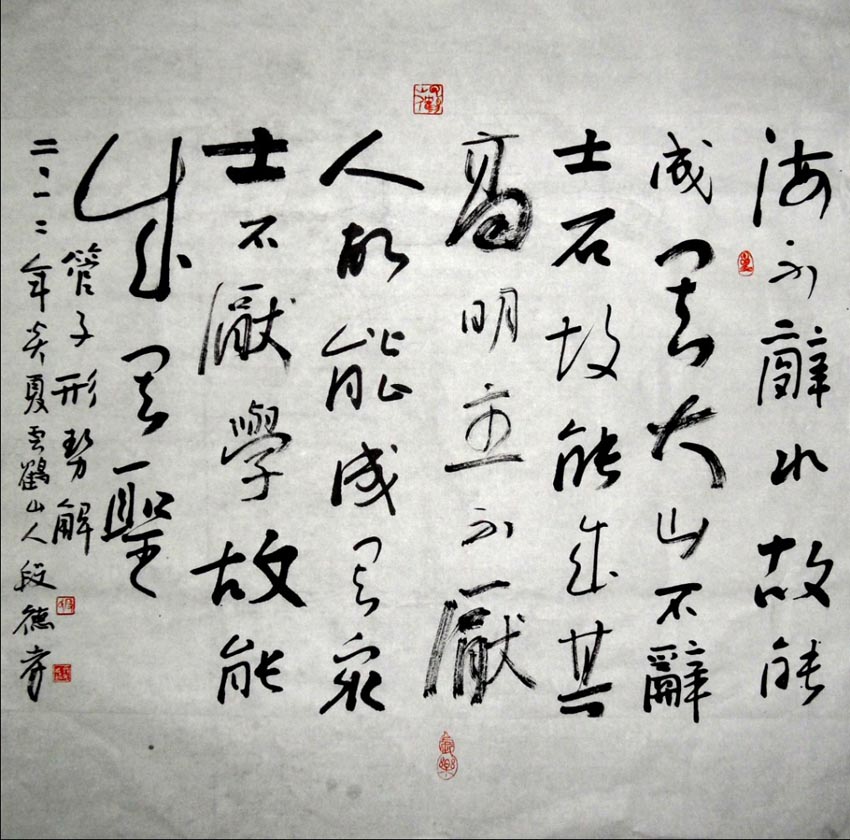 海不辭水故能
成其大山不辭
士石故能成其
高明主不厭
人故能成其衆
士不厭學故能
成其聖
管子形勢解
二〇一二年炎夏云鶴山人段德